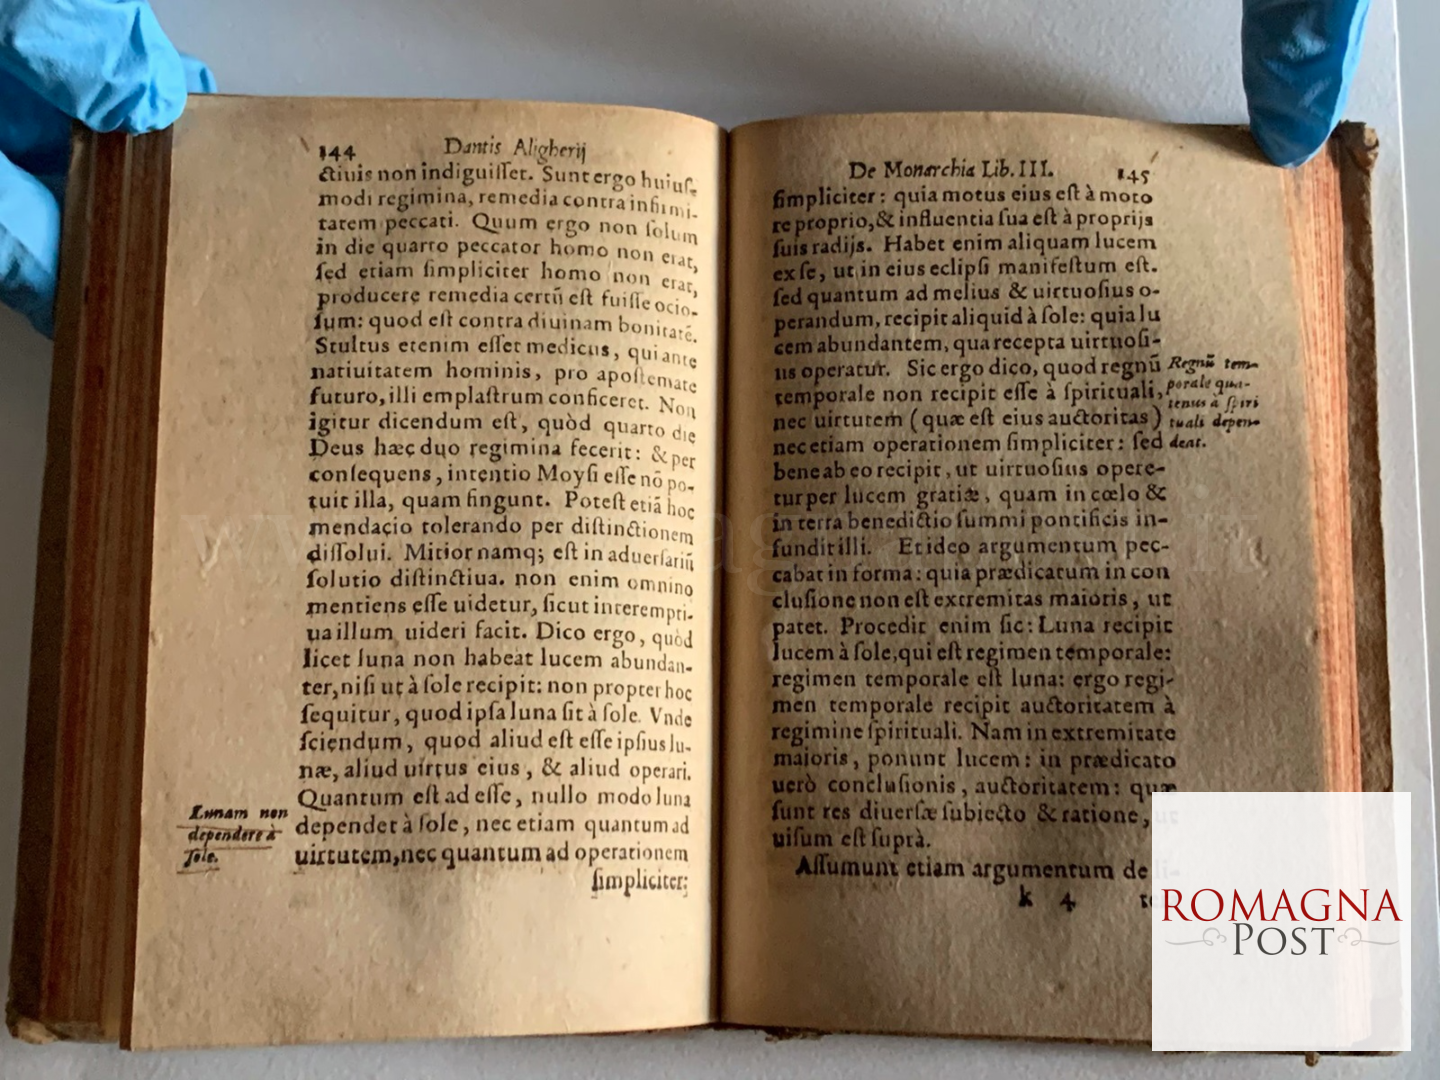 144 Dantis Aligherij
ctiuis non indiguisset. Sunt ergo huius-
modi regimina, remedia contra infirmi-
tatem peccati. Quum ergo non solum
in die quarto peccator homo non erat,
sed etiam simpliciter homo non erat,
producere remedia certū est fuisse ocio-
sum: quod est contra diuinam bonitatē.
Stultus etenim esset medicus, qui ante
natiuitatem hominis, pro apostemate
futuro, illi emplastrum conficeret. Non
igitur dicendum est, quòd quarto die
Deus hæc duo regimina fecerit: & per
consequens, intentio Moysi esse nō po-
tuit illa, quam fingunt. Potest etiā hoc
mendacio tolerando per distinctionem
dissolui. Mitior namq; est in aduersariū
solutio distinctiua. non enim omnino
mentiens esse uidetur, sicut interempti-
ua illum uideri facit. Dico ergo, quòd
licet luna non habeat lucem abundan-
ter, nisi ut à sole recipit: non propter hoc
sequitur, quod ipsa luna sit à sole. Vnde
sciendum, quod aliud est esse ipsius lu-
næ, aliud uirtus eius, & aliud operari.
Quantum est ad esse, nullo modo luna
dependet à sole, nec etiam quantum ad
uirtutem, nec quantum ad operationem
simpliciter:
Lunam non
dependere à
sole.
De Monarchia Lib. III. 145
simpliciter: quia motus eius est à moto
re proprio, & influentia sua est à proprijs
suis radijs. Habet enim aliquam lucem
ex se, ut in eius eclipsi manifestum est.
sed quantum ad melius & uirtuosius o-
perandum, recipit aliquid à sole: quia lu
cem abundantem, qua recepta uirtuosi-
us operatur. Sic ergo dico, quod regnū
temporale non recipit esse à spirituali,
nec uirtutem (quæ est eius auctoritas)
nec etiam operationem simpliciter: sed
bene ab eo recipit, ut uirtuosius opere-
tur per lucem gratiæ, quam in cœlo &
in terra benedictio summi pontificis in-
fundit illi. Et ideo argumentum pec-
cabat in forma: quia prædicatum in con
clusione non est extremitas maioris, ut
patet. Procedit enim sic: Luna recipit
lucem à sole, qui est regimen temporale:
regimen temporale est luna: ergo regi-
men temporale recipit auctoritatem à
regimine spirituali. Nam in extremitate
maioris, ponunt lucem: in prædicato
uerò conclusionis, auctoritatem: quæ
sunt res diuersæ subiecto & ratione, ut
uisum est suprà.
Assumunt etiam argumentum de li-
k 4 te
Regnū tem-
porale qua-
tenus à spiri
tuali depen-
deat.
ROMAGNA
POST